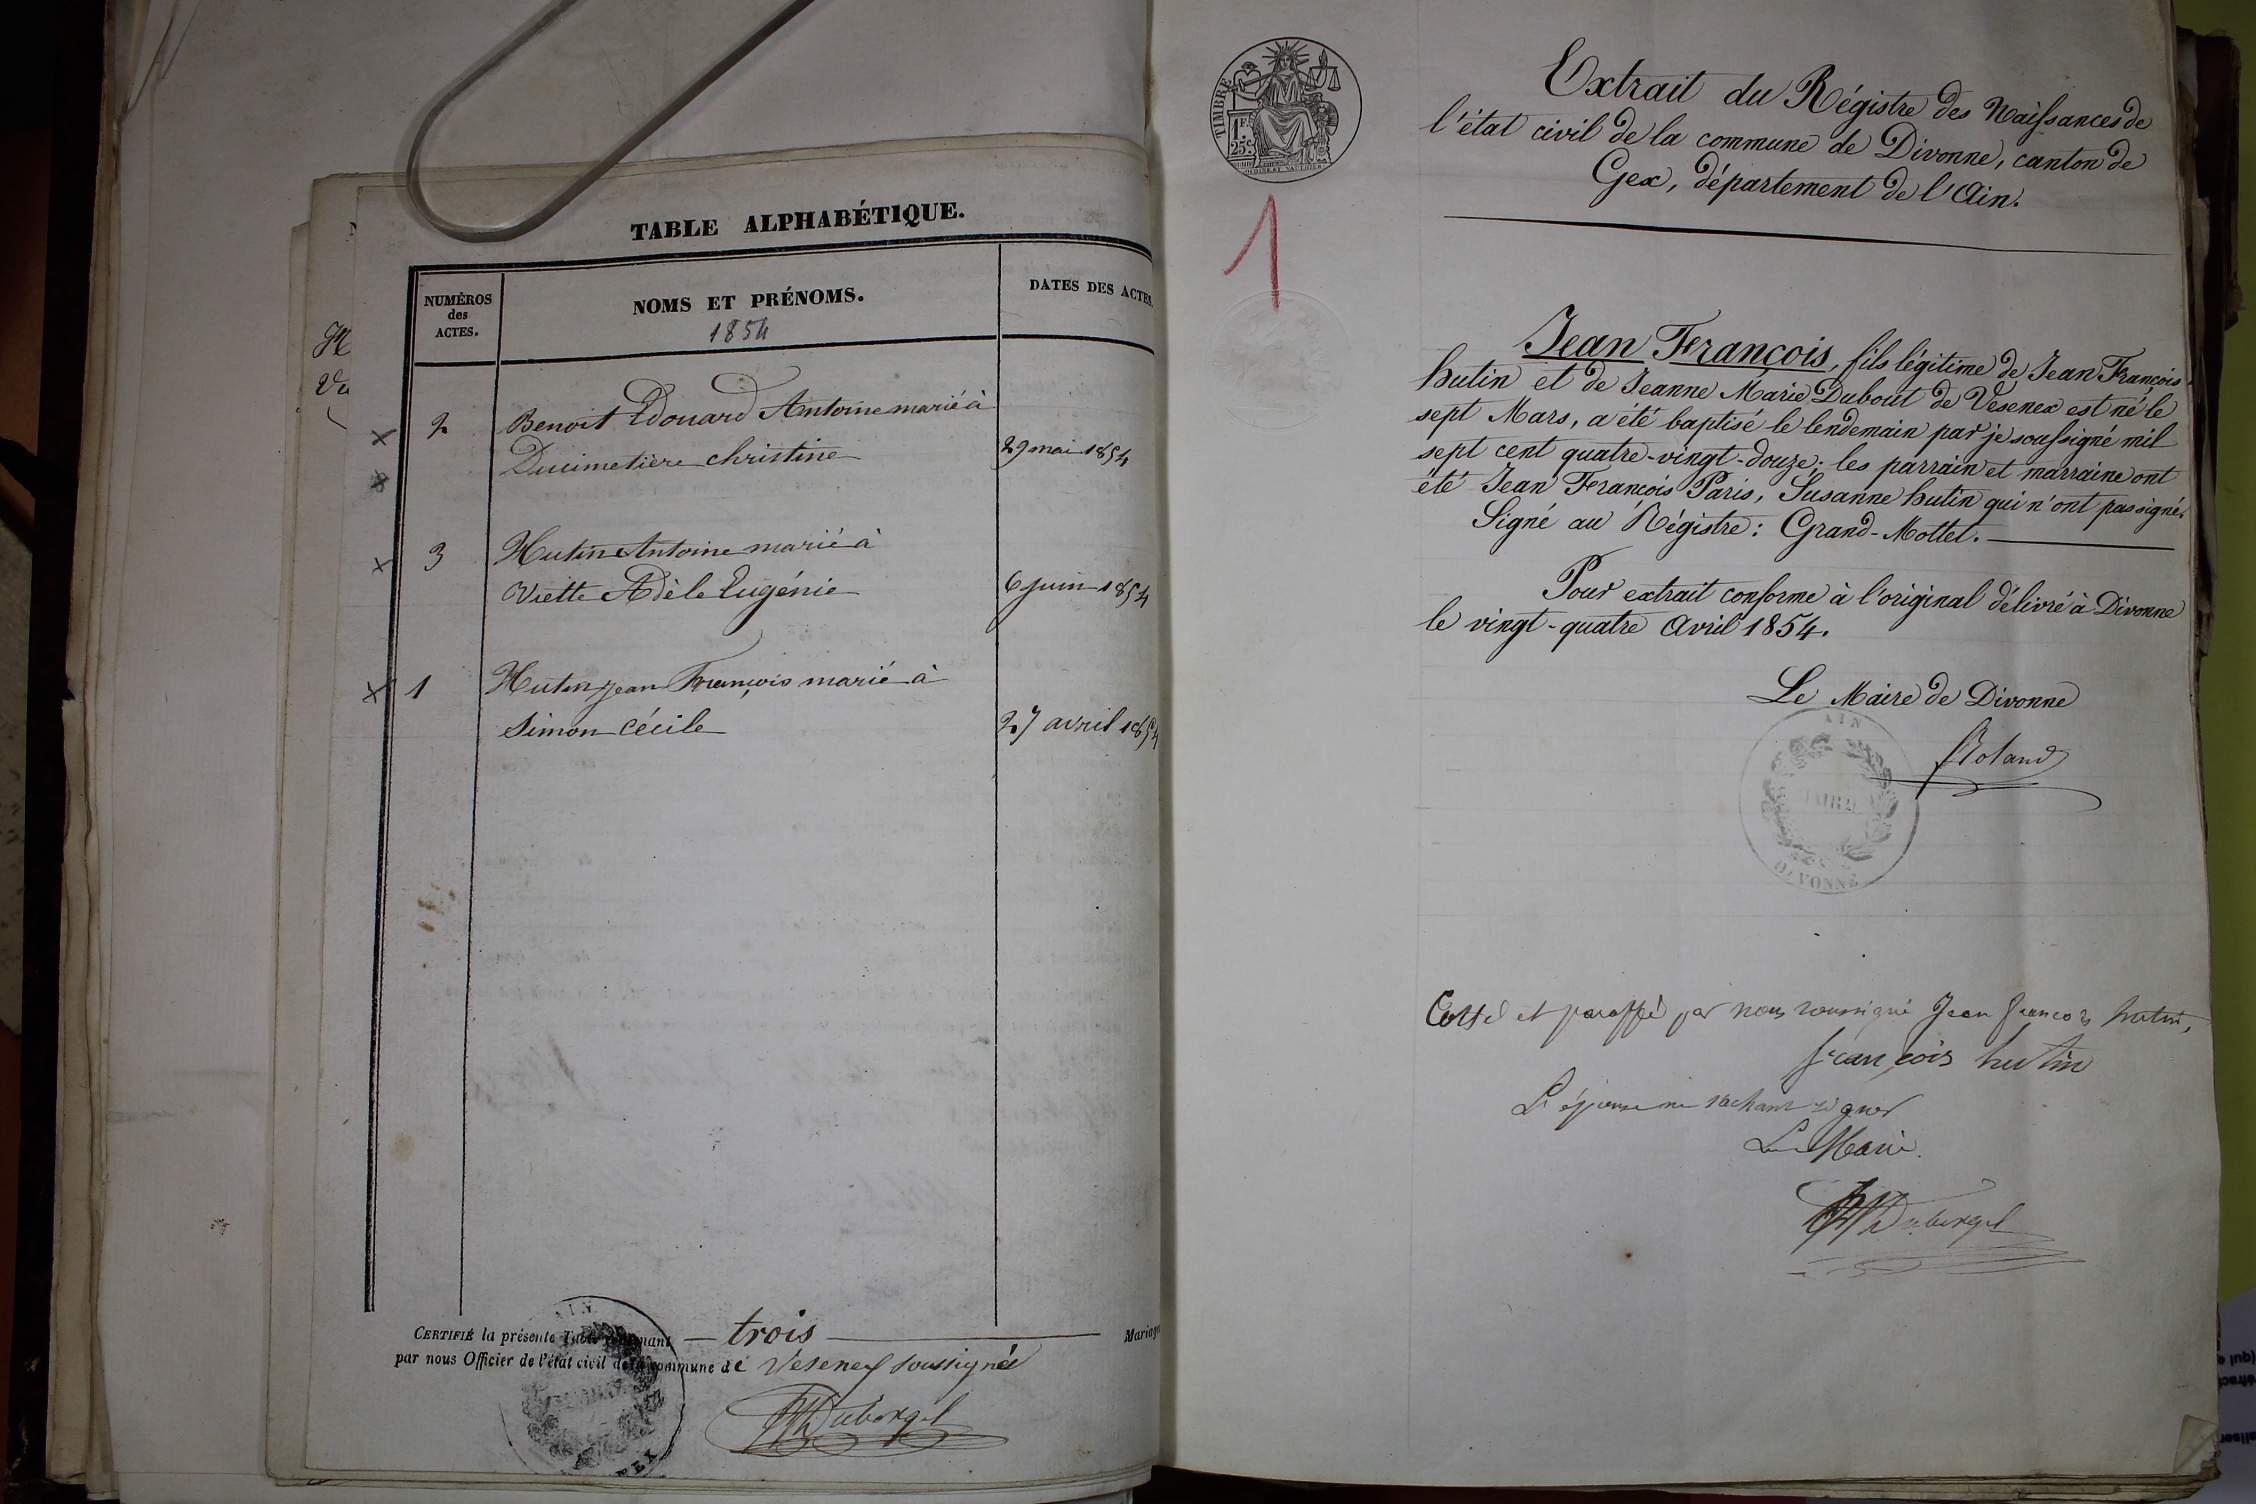 TABLE ALPHABÉTIQUE.
NUMÉROS des ACTES.
NOMS ET PRÉNOMS.
1854
DATES DES ACTES.
2 Benoit Edouard Antoine marié à
Ducimetière christine 29 mai 1854
3 Hutin Antoine marié à
Viette Adèle Eugénie 6 juin 1854
1 Hutin jean François marié à
Simon Cécile 27 avril 1854
CERTIFIÉ la présente Table trois Mariages
par nous Officier de l'état civil de la commune de Vésenex soussigné
Duborgel
TIMBRE
1 F.
25 c.
1
Extrait du Régistre des Naissances de
l'état civil de la commune de Divonne, canton de
Gex, département de l'Ain.
Jean François, fils légitime de Jean François
hutin et de Jeanne Marie Dubout de Vesenex est né le
sept Mars, a été baptisé le lendemain par je soussigné mil
sept cent quatre-vingt-douze; les parrain et marraine ont
été Jean François Paris, Susanne hutin qui n'ont pas signé.
Signé au Régistre: Grand-Mottet.
Pour extrait conforme à l'original délivré à Divonne
le vingt-quatre Avril 1854.
Le Maire de Divonne
AIN
MAIRIE
DIVONNE
Roland
Cotté et paraffé par nous soussigné Jean françois hutin,
françois hutin
L'épouse ne sachant signer
Le Maire.
Duborgel